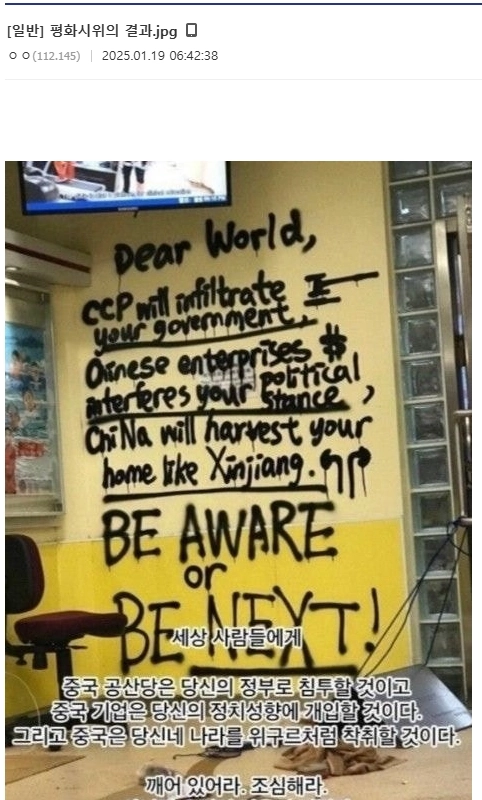 [일반] 평화시위의 결과.jpg
ㅇㅇ(112.145) | 2025.01.19 06:42:38
Dear World,
CCP will infiltrate
your government,
Chinese enterprises $
interferes your political
stance,
ChiNa will harvest your
home like Xinjiang.
BE AWARE
or
BE NEXT!
세상 사람들에게
중국 공산당은 당신의 정부로 침투할 것이고
중국 기업은 당신의 정치성향에 개입할 것이다.
그리고 중국은 당신네 나라를 위구르처럼 착취할 것이다.
깨어 있어라. 조심해라.